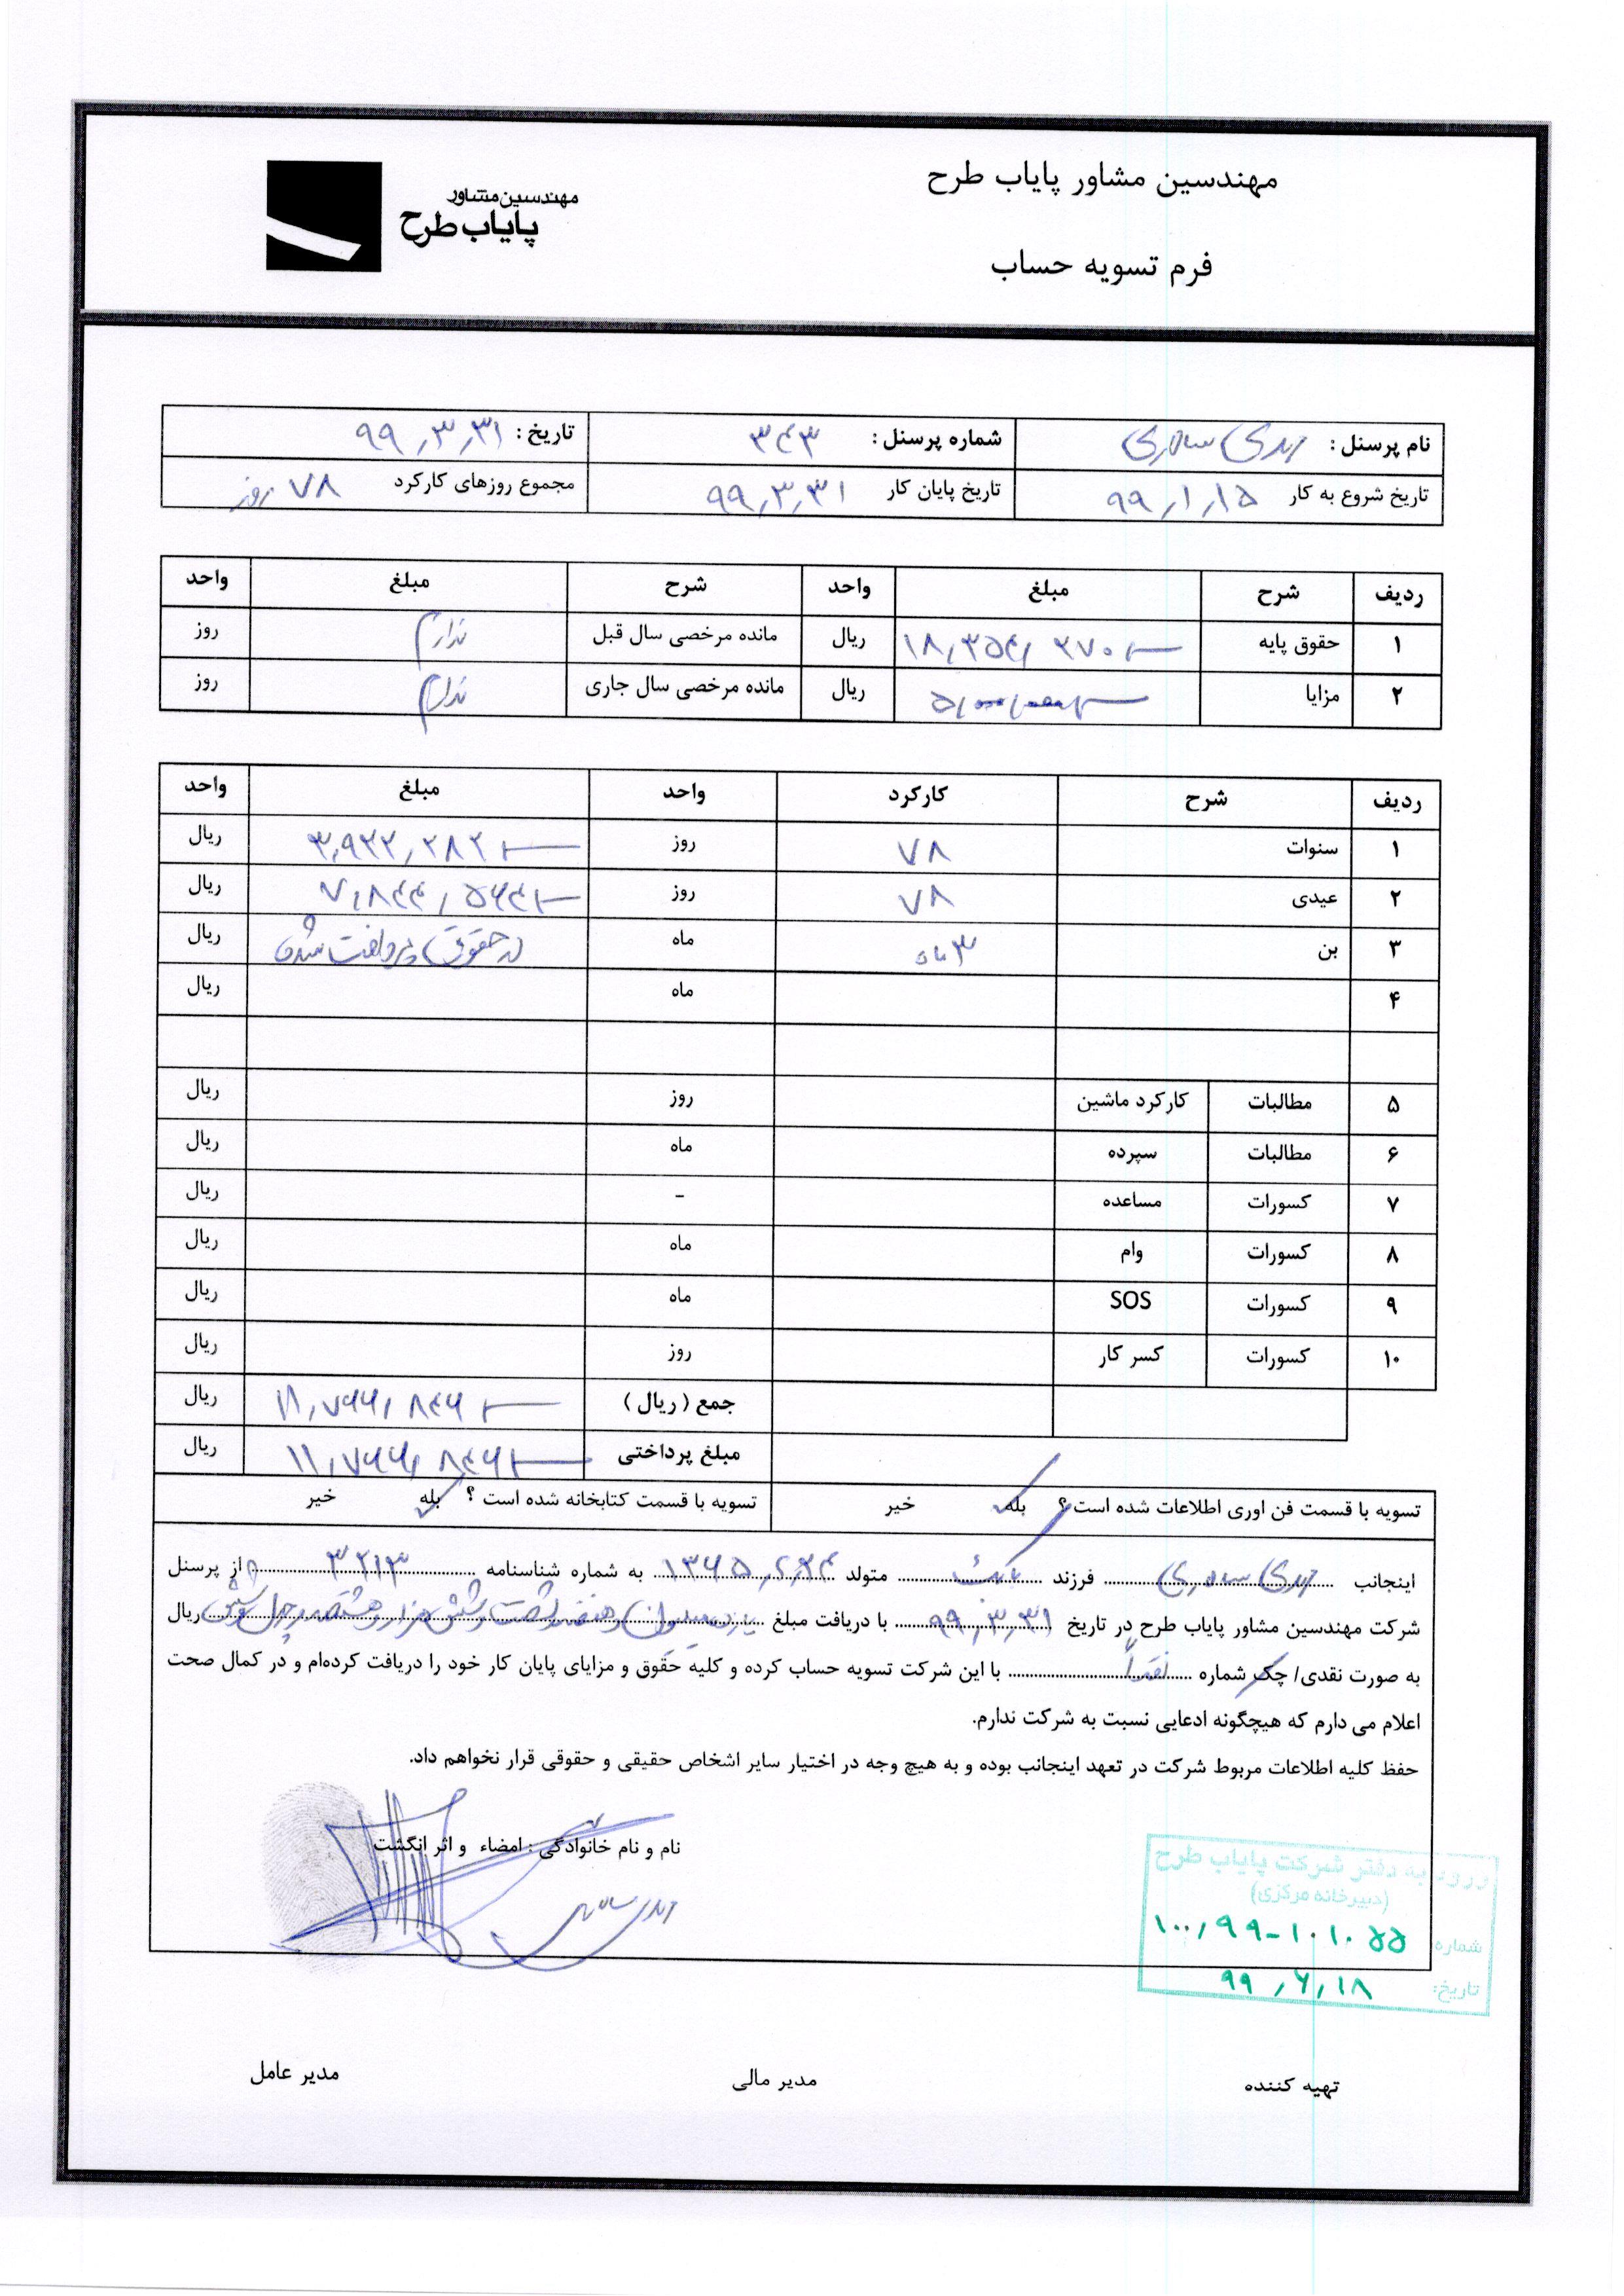 مهندسین مشاور پایاب طرح
مهندسین مشاور
پایاب طرح
فرم تسویه حساب
نام پرسنل : مهدی سالاری شماره پرسنل : ۳۴۳ تاریخ : ۹۹,۳,۳۱
تاریخ شروع به کار ۹۹,۱,۱۵ تاریخ پایان کار ۹۹,۳,۳۱ مجموع روزهای کارکرد ۷۸ روز
ردیف شرح مبلغ واحد شرح مبلغ واحد
۱ حقوق پایه ۱۸,۳۵۴,۲۷۰ ریال مانده مرخصی سال قبل ندارم روز
۲ مزایا ۵,۰۰۰,۰۰۰ ریال مانده مرخصی سال جاری ندارم روز
ردیف شرح کارکرد واحد مبلغ واحد
۱ سنوات ۷۸ روز ۳,۹۲۲,۲۸۲ ریال
۲ عیدی ۷۸ روز ۷,۸۴۴,۵۶۴ ریال
۳ بن ۳ ماه ماه در حقوق دریافت شده ریال
۴ ماه ریال
۵ مطالبات کارکرد ماشین روز ریال
۶ مطالبات سپرده ماه ریال
۷ کسورات مساعده - ریال
۸ کسورات وام ماه ریال
۹ کسورات SOS ماه ریال
۱۰ کسورات کسر کار روز ریال
جمع ( ریال ) ۱۱,۷۶۶,۸۴۶ ریال
مبلغ پرداختی ۱۱,۷۶۶,۸۴۶ ریال
تسویه با قسمت فن اوری اطلاعات شده است ؟ بله خیر تسویه با قسمت کتابخانه شده است ؟ بله خیر
اینجانب مهدی سالاری فرزند متولد ۱۳۶۵ به شماره شناسنامه ۳۲۱۳ از پرسنل
شرکت مهندسین مشاور پایاب طرح در تاریخ ۹۹,۳,۳۱ با دریافت مبلغ یازده میلیون و هفتصد و شصت و شش هزار و هشتصد و چهل و شش ریال
به صورت نقدی/ چک شماره نقداً با این شرکت تسویه حساب کرده و کلیه حقوق و مزایای پایان کار خود را دریافت کرده‌ام و در کمال صحت
اعلام می دارم که هیچگونه ادعایی نسبت به شرکت ندارم.
حفظ کلیه اطلاعات مربوط شرکت در تعهد اینجانب بوده و به هیچ وجه در اختیار سایر اشخاص حقیقی و حقوقی قرار نخواهم داد.
نام و نام خانوادگی : امضاء و اثر انگشت
ورود به دفتر شرکت پایاب طرح
(دبیرخانه مرکزی)
شماره ۱۰۰,۹۹-۱۰۱۰۵۵
تاریخ: ۹۹,۶,۱۸
تهیه کننده مدیر مالی مدیر عامل